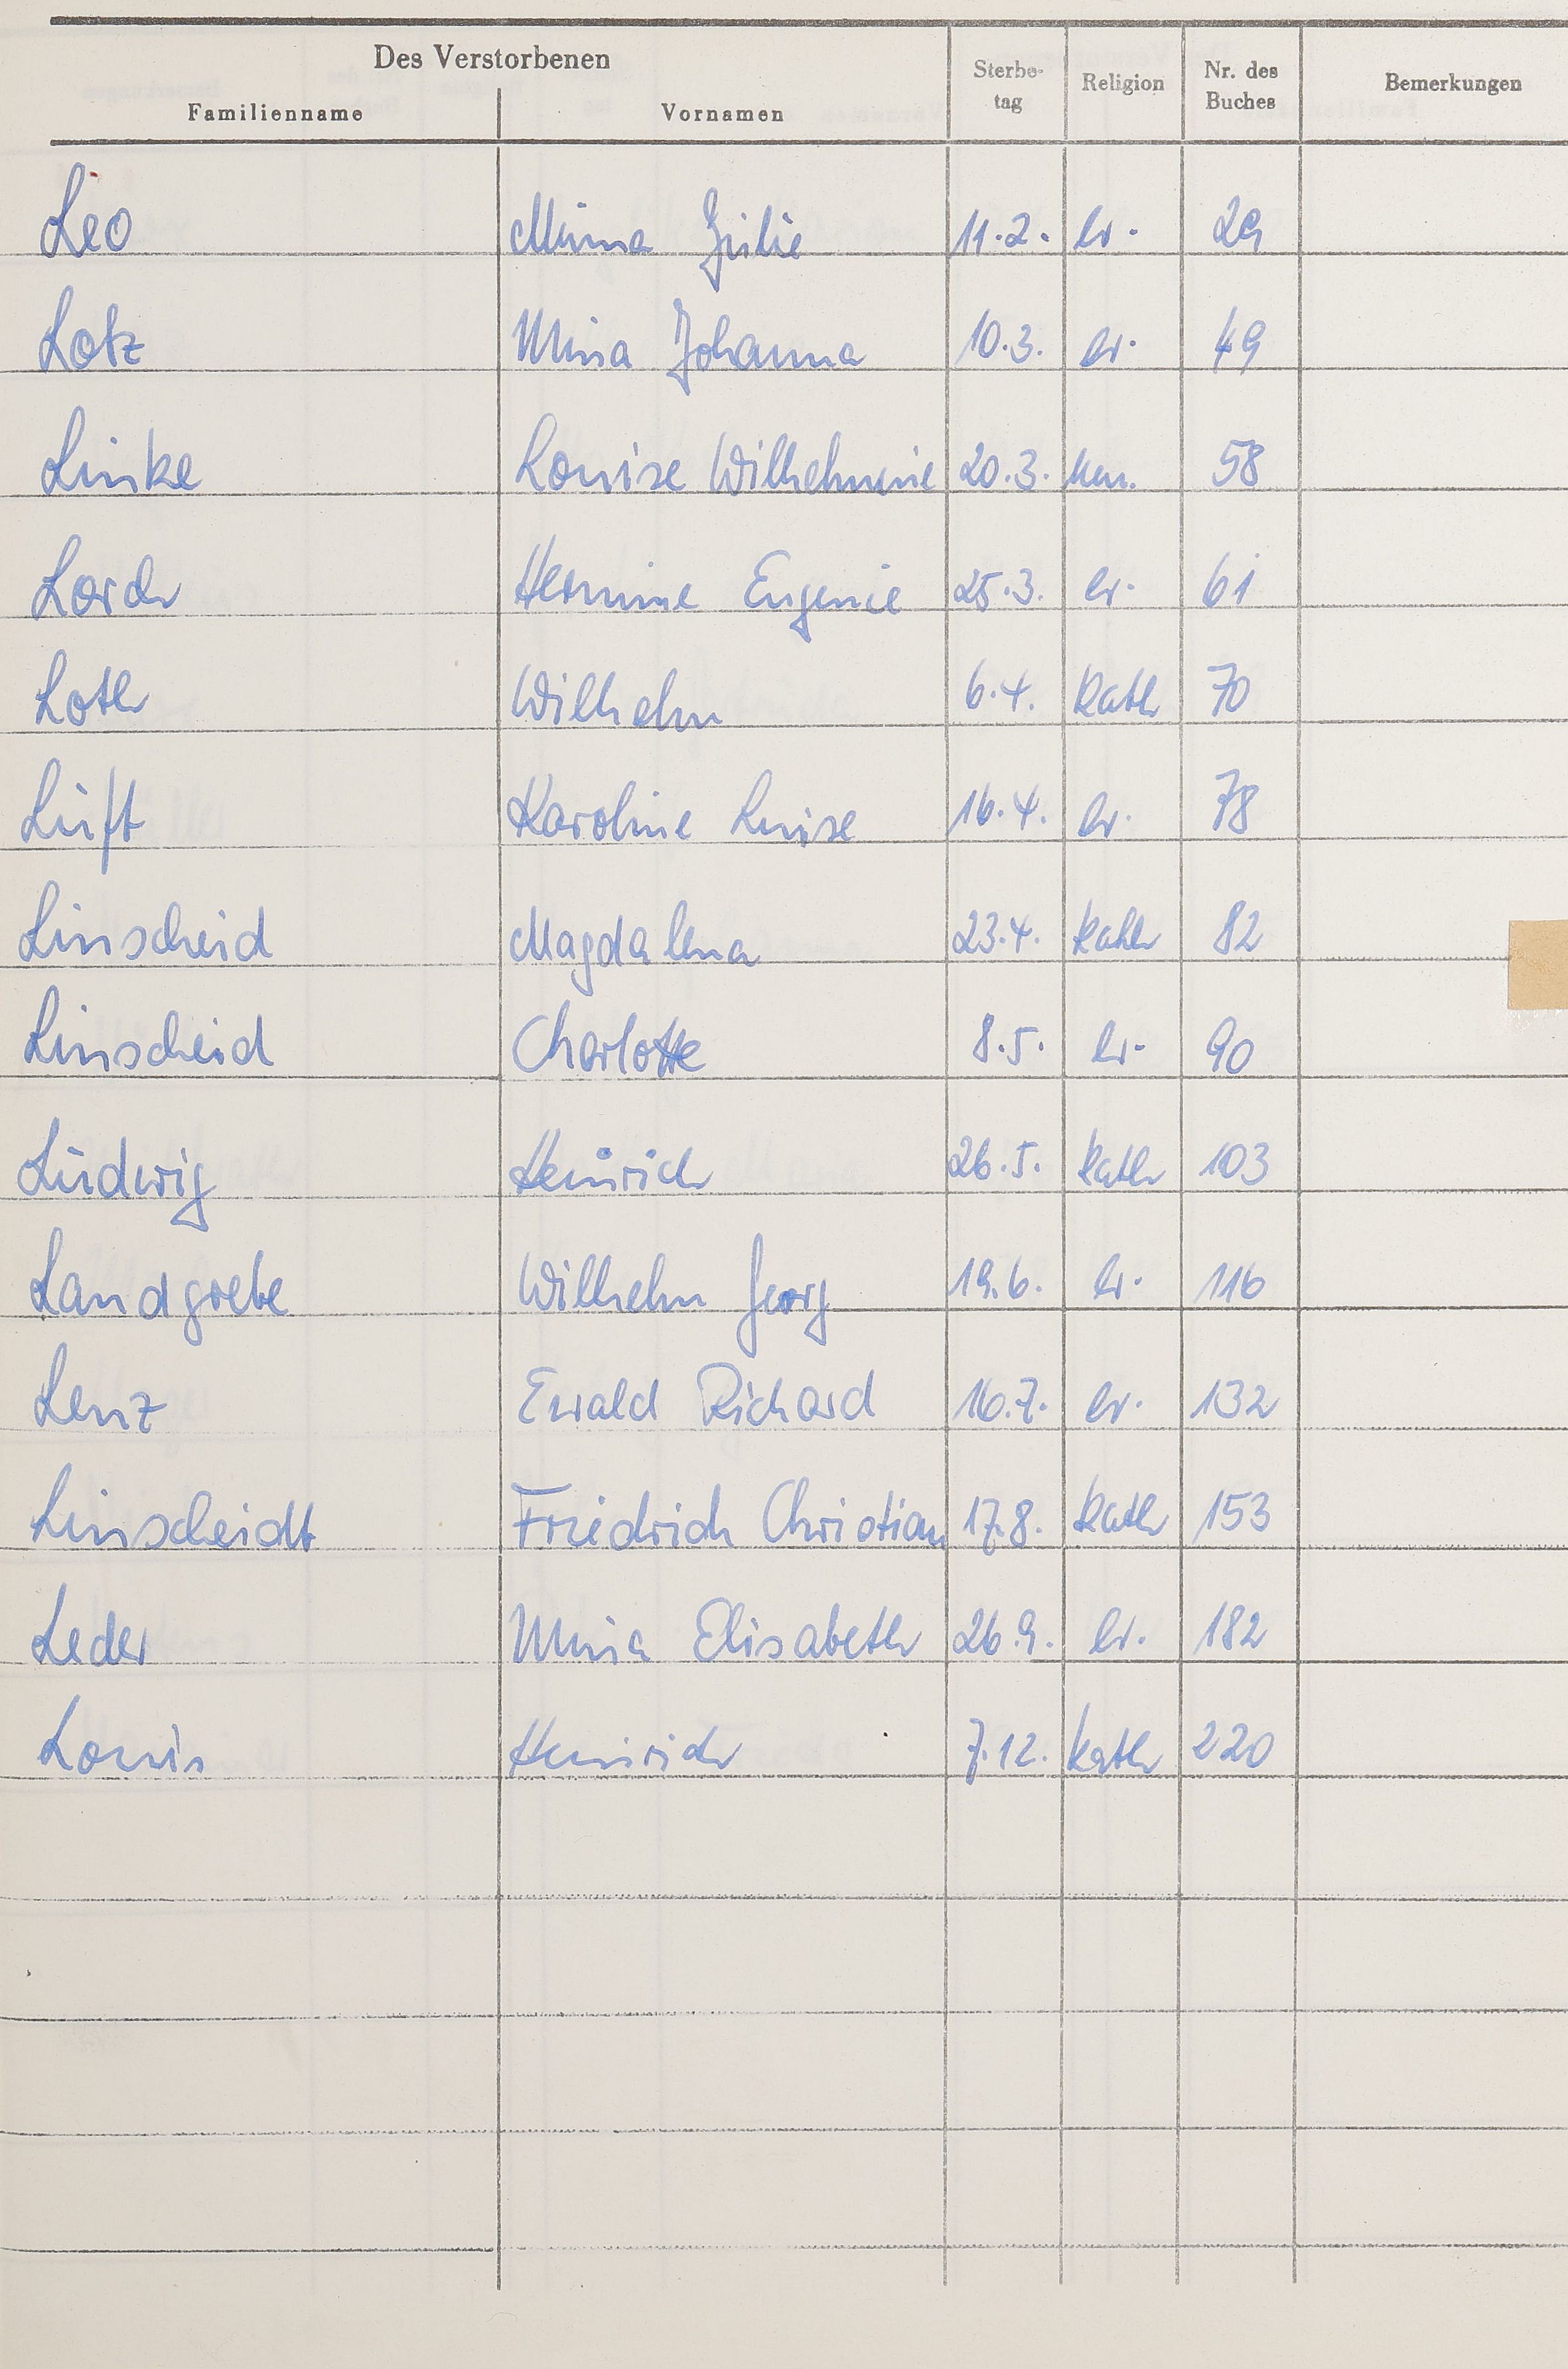 Des Verstorbenen
Familienname Vornamen Sterbe-tag Religion Nr. des Buches Bemerkungen
Leo Minna Julie 11.2. ev. 29
Lotz Mina Johanna 10.3. ev. 49
Linke Louise Wilhelmine 20.3. 58
Lorch Hermine Eugenie 25.3. ev. 61
Loth Wilhelm 6.4. Kath 70
Luft Karoline Luise 16.4. ev. 78
Linscheid Magdalena 23.4. kath 82
Linscheid Charlotte 8.5. ev. 90
Ludwig Heinrich 26.5. kath 103
Landgrebe Wilhelm Georg 19.6. ev. 116
Lenz Ewald Richard 16.7. ev. 132
Linscheidt Friedrich Christian 17.8. kath 153
Leder Mina Elisabeth 26.9. ev. 182
Louis Heinrich 7.12. kath 220